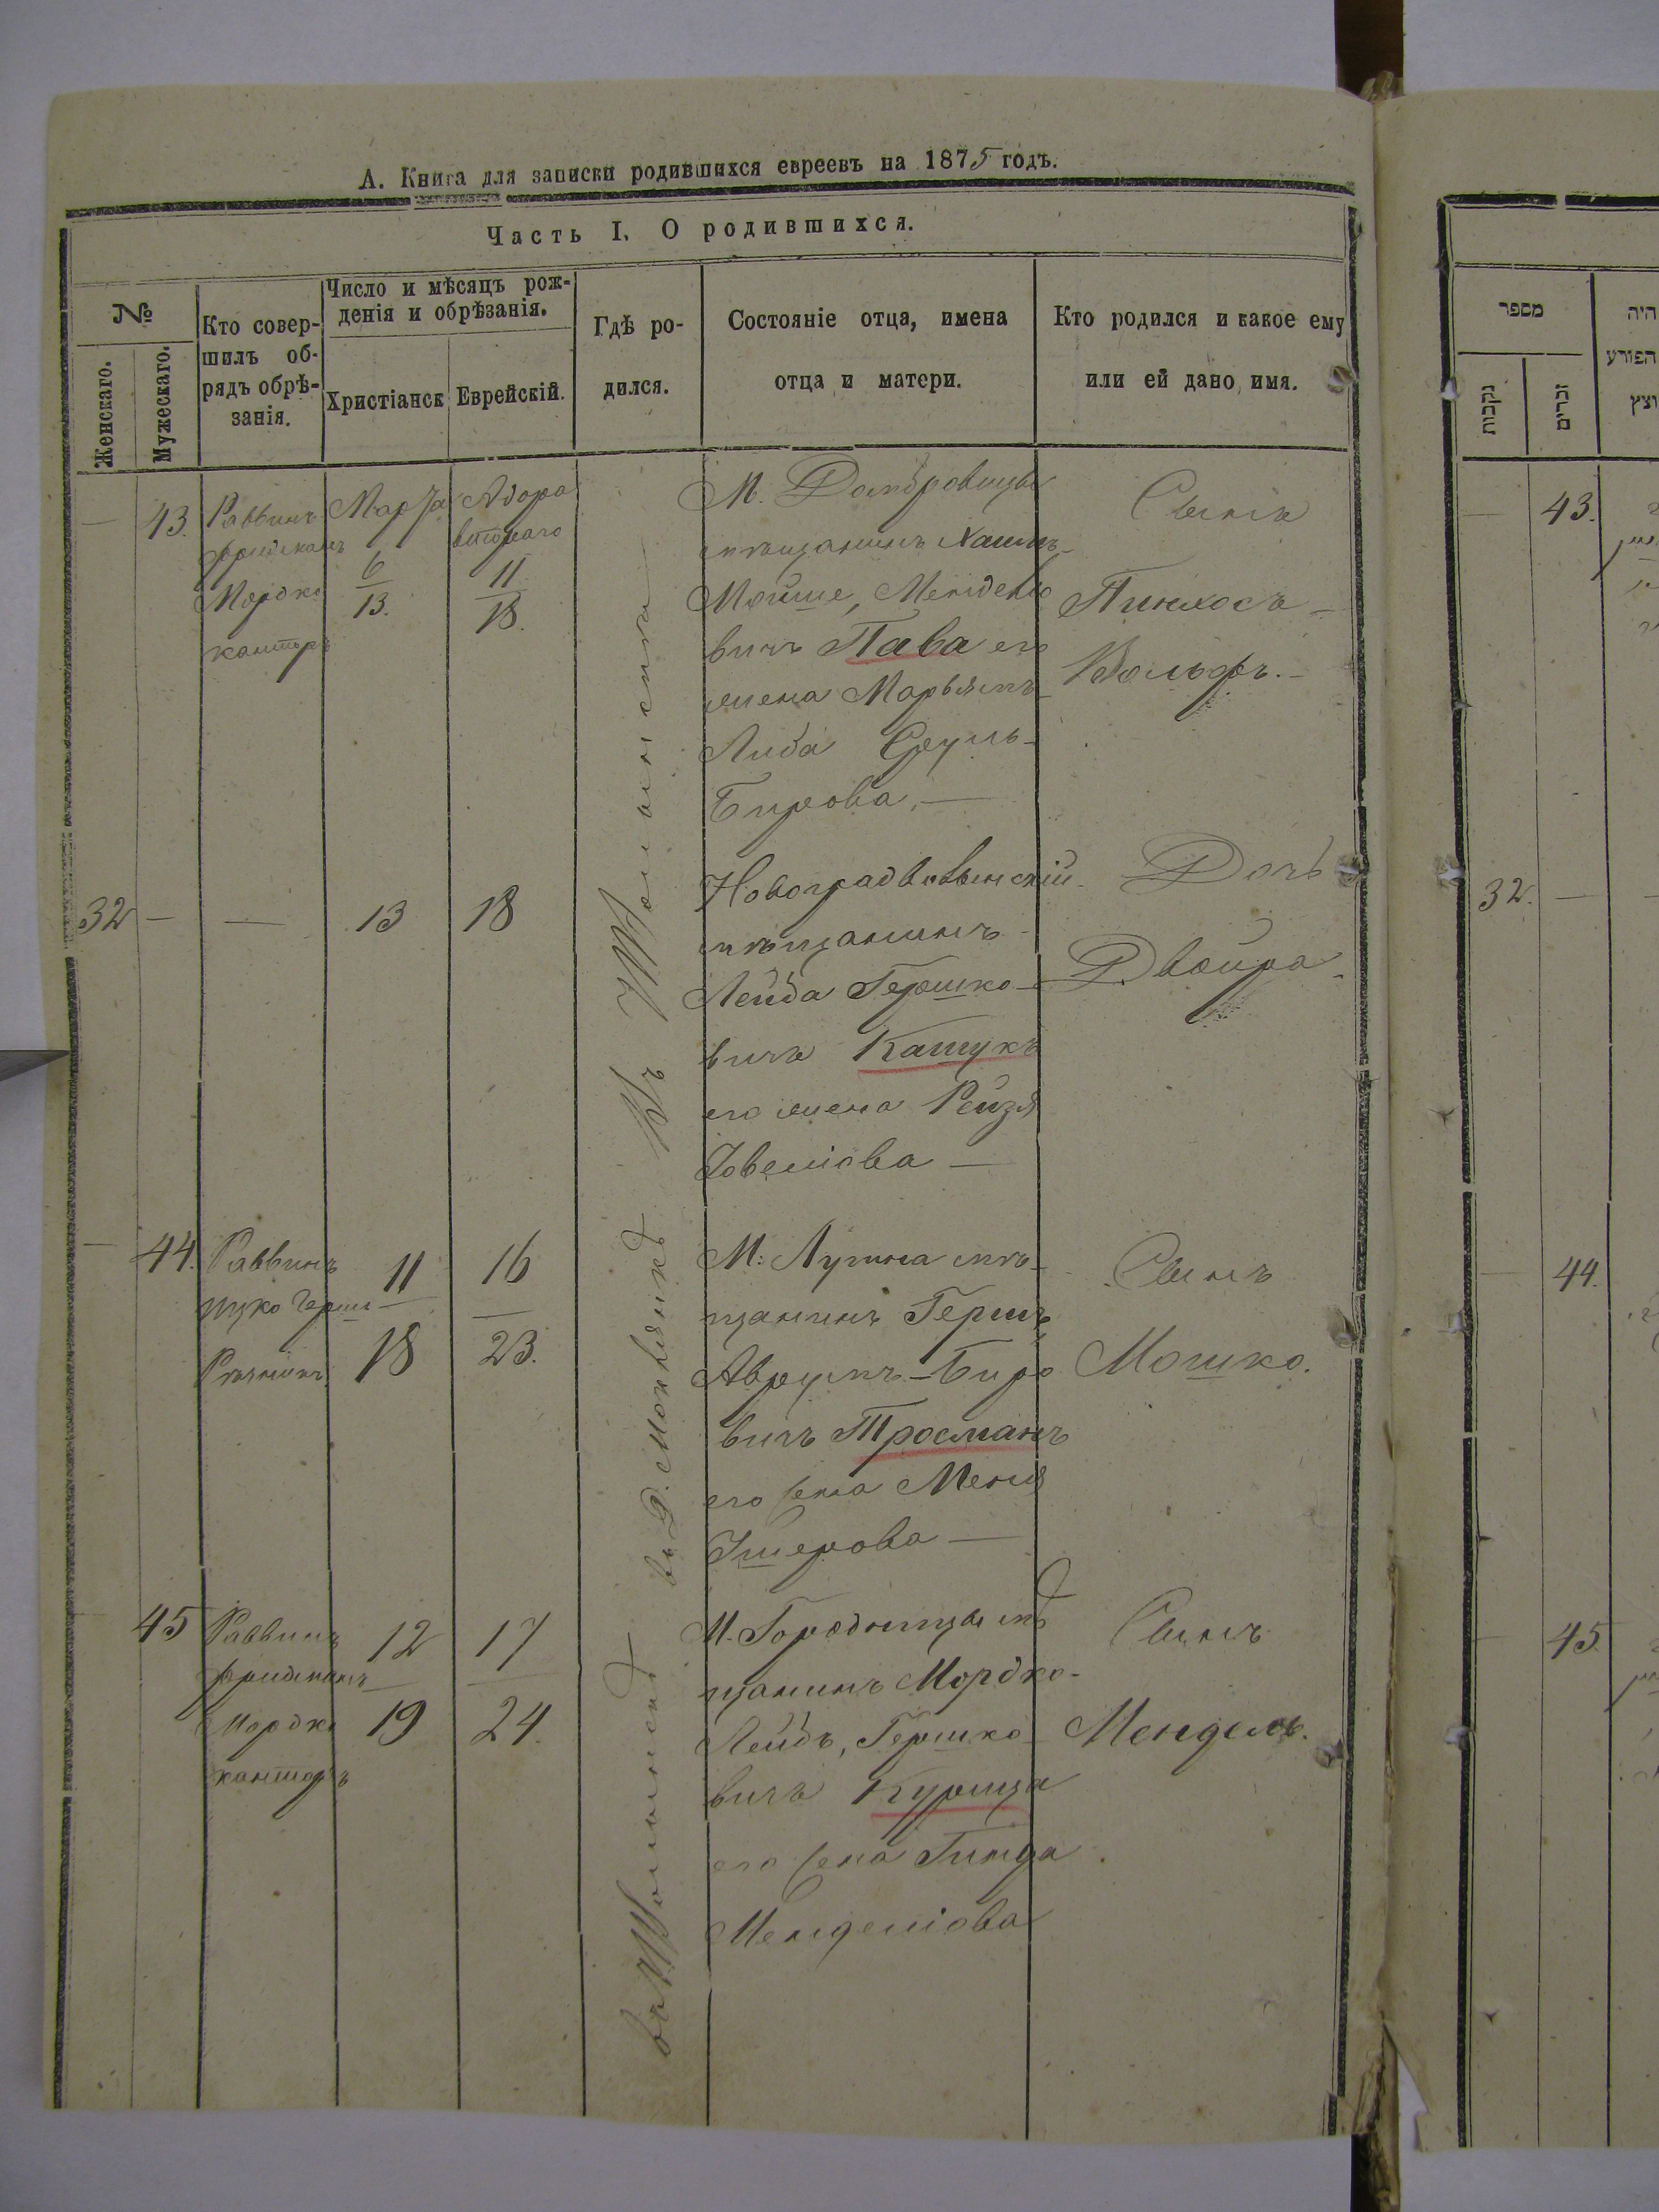 А. Книга для записки родившихся евреевъ на 1875 годъ.
Часть I. О родившихся.
№
Женскаго.
Мужескаго.
Кто совер-
шилъ об-
рядъ обрѣ-
занія.
Число и мѣсяцъ рож-
денія и обрѣзанія.
Христіанск
Еврейскій.
Гдѣ ро-
дился.
Состояніе отца, имена
отца и матери.
Кто родился и какое ему
или ей дано имя.
—
43.
Раввинъ
фридманъ
Мордко
канторъ
Марта
6
13.
Адара
втораго
11
18.
М. Домбровицы
мѣщанинъ Хаимъ-
Мойше, Менделіо
вичъ Пава его
жена Марьямъ-
Либа Сруль-
Бирова. —
Сынъ
Пинхосъ-
Вольфъ. —
32
—
—
13
18
Новоградволынскій
мѣщанинъ
Лейба Гершко-
вичъ Кашукъ
его жена Рейзя
Іовеліова —
Дочь
Двойра.
—
44.
Раввинъ
ицко Герш
11
18
16
23.
М: Лугина мѣ-
щанинъ Гершъ
Аврумъ-Биро
вичъ Тросманъ
его жена Меня
Ушерова —
Сынъ
Мошко.
45
Раввинъ
фридманъ
Мордко
канторъ
12
19
17
24.
М. Городницы мѣ
щанинъ Мордко-
Лейбъ, Гершко-
вичъ Курица
его жена Гинда
Менделіова
Сынъ
Мендель.
מספר
נקבות
זכרים
היה
הפורע
וצץ
43.
32.
—
44.
45.